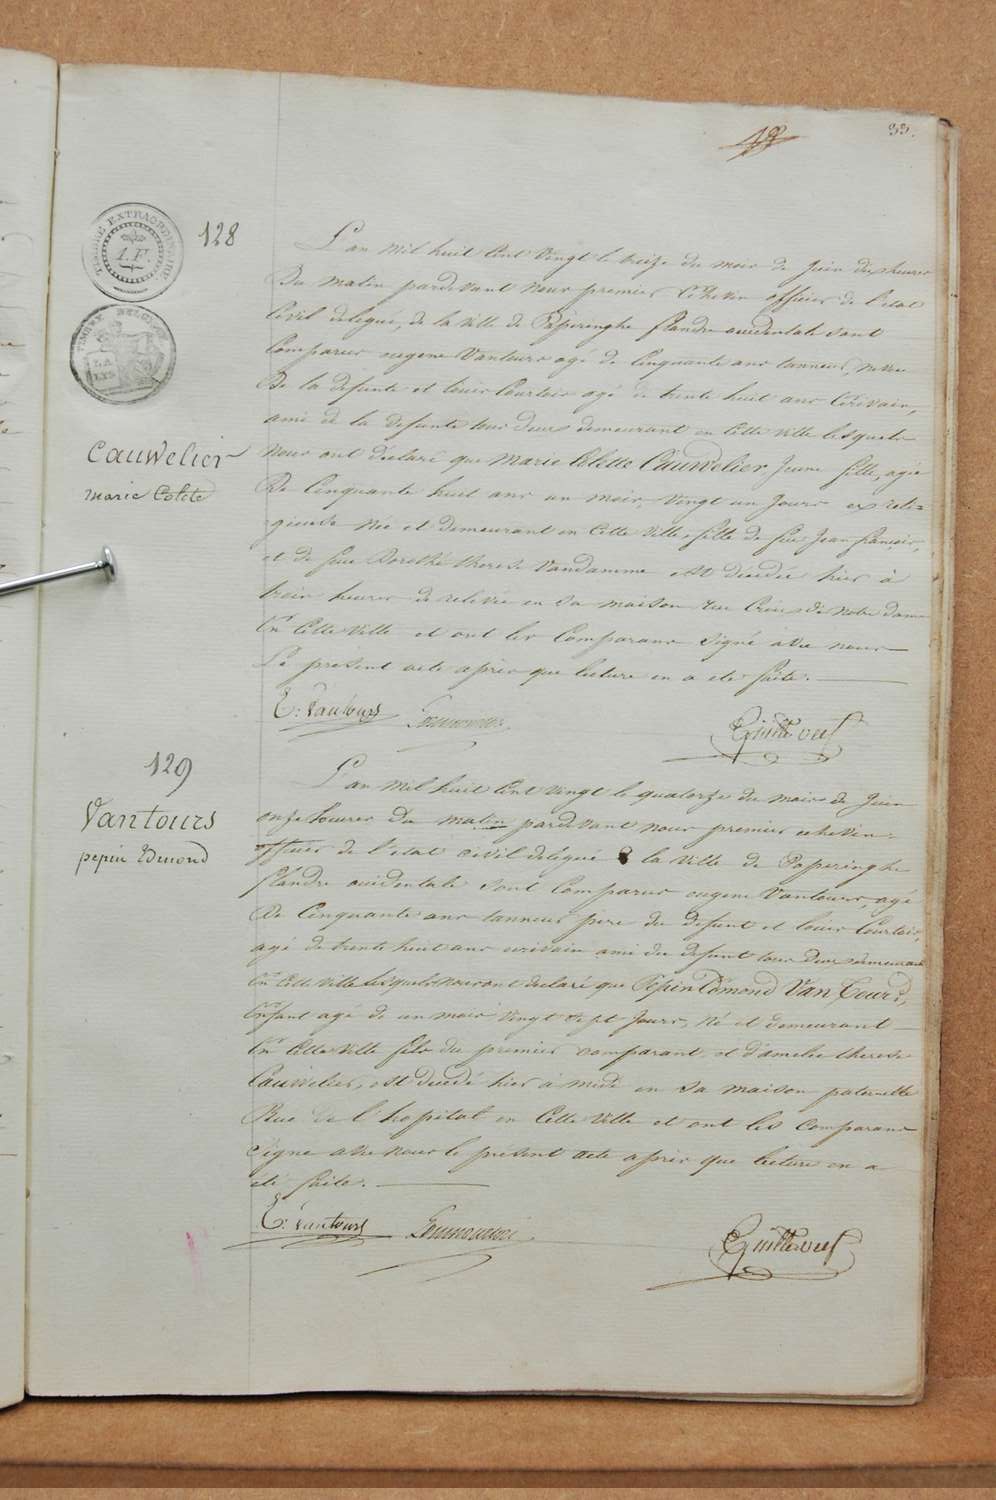 33.
TIMBRE EXTRAORDINAIRE
1. F.
TIMBRE BELGIQUE
LA
LYS
128
Cauwelier
marie Colete
L'an mil huit Cent Vingt le treize du mois de Juin dix heures
Du matin pardevant Nous premier Echevin officier de l'etat
Civil delegué, de la Ville de Poperinghe flandre occidentale sont
Comparus eugene Vantours agé de Cinquante ans tanneur, neveu
De la défunte et louis Courtois agé de trente huit ans Ecrivain,
ami de la defunte tous deux demeurant en Cette Ville lesquels
Nous ont declaré que Marie Colette Cauwelier, Jeune fille, agée
De Cinquante huit ans un mois, Vingt un Jours ex reli=
gieuse Née et demeurant en Cette Ville, fille de feu Jean françois,
et de feue Dorothé therese Vandamme est décedée hier à
trois heures de relevée en sa maison rue Croix de Notre dame
En Cette Ville et ont les Comparans signé avec nous
Le présent acte après que lecture en a eté faite.
E: Vantours
129
Vantours
pepin Edmond
L'an Mil huit Cent Vingt le quatorze du mois de Juin
onze heures Du matin pardevant nous premier echevin
officier de l'etat civil delegué & la Ville de Poperinghe
flandre occidentale sont Comparus eugene Vantours, agé
De Cinquante ans tanneur père du defunt et louis Courtois,
agé de trente huit ans ecrivain ami du defunt tous deux demeurant
En Cette Ville lesquels nous ont declaré que Pepin Edmond Van Tours,
Enfant agé de un mois Vingt sept Jours, Né et demeurant
En Cette Ville fils du premier comparant et d'amelie therese
Cauwelier, est decedé hier à midi en sa maison paternelle
Rue de l'hopital en Cette Ville et ont les comparans
Signé avec nous le présent acte après que lecture en a
eté faite.
E: Vantours